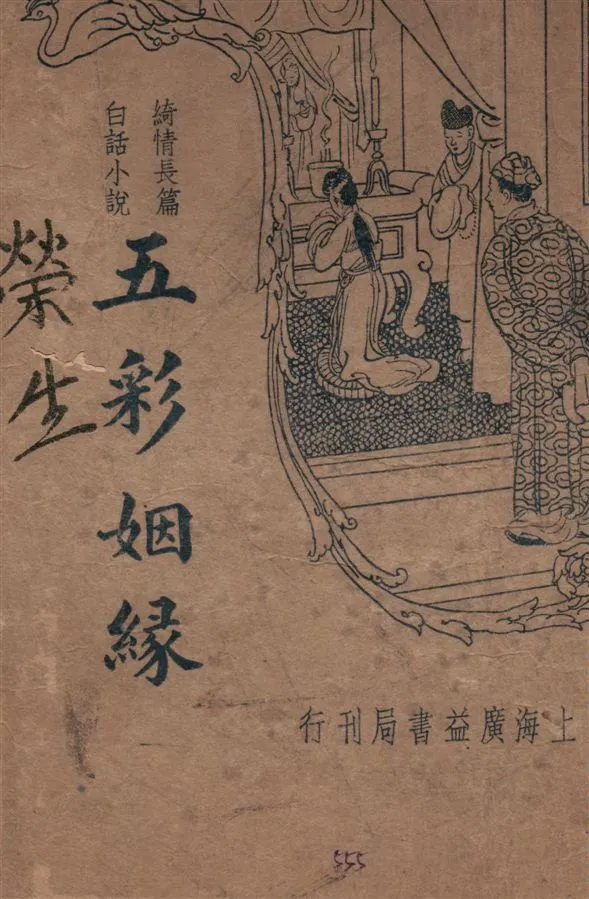 綺情長篇
白話小說
五彩姻緣
榮生
上海廣益書局刊行
555